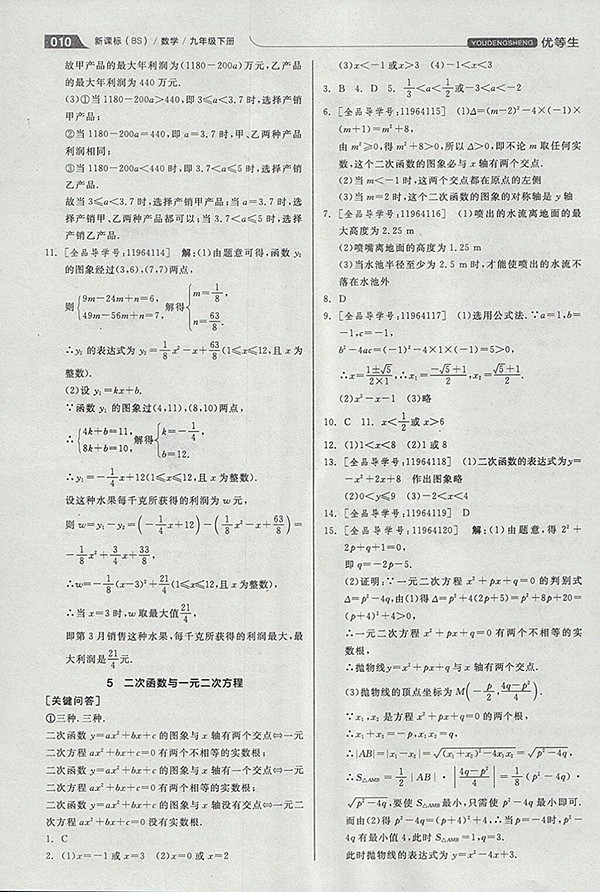 010 新课标(BS) / 数学 / 九年级下册
YOUDENGSHENG 优等生
故甲产品的最大年利润为(1180-200a)万元,乙产品
的最大年利润为440万元.
(3)①当1180-200a>440,即3≤a<3.7时,选择产销
甲产品;
②当1180-200a=440,即a=3.7时,甲、乙两种产品
利润相同;
③当1180-200a<440时,即3.7<a≤5时,选择产销
乙产品.
故当3≤a<3.7时,选择产销甲产品;当a=3.7时,选
择产销甲、乙两种产品都可以;当3.7<a≤5时,选择产
销乙产品.
11. [全品导学号:11964114] 解:(1)由题意可得,函数y₂
的图象经过(3,6),(7,7)两点,
则{9m-24m+n=6, 49m-56m+n=7, 解得{m=1/8, n=63/8.
∴y₂的表达式为y₂=1/8x²-x+63/8(1≤x≤12,且x为
整数).
(2)设y₁=kx+b.
∵函数y₁的图象过(4,11),(8,10)两点,
∴{4k+b=11, 8k+b=10, 解得{k=-1/4, b=12.
∴y₁=-1/4x+12(1≤x≤12,且x为整数).
设这种水果每千克所获得的利润为w元,
则w=y₁-y₂=(-1/4x+12)-(1/8x²-x+63/8)=
-1/8x²+3/4x+33/8,
∴w=-1/8(x-3)²+21/4(1≤x≤12,且x为整数),
∴当x=3时,w取最大值21/4,
即第3月销售这种水果,每千克所获得的利润最大,最
大利润是21/4元.
5 二次函数与一元二次方程
[关键问答]
①三种.三种.
二次函数y=ax²+bx+c的图象与x轴有两个交点⇔一元
二次方程ax²+bx+c=0有两个不相等的实数根;
二次函数y=ax²+bx+c的图象与x轴有一个交点⇔一元
二次方程ax²+bx+c=0有两个相等的实数根;
二次函数y=ax²+bx+c的图象与x轴没有交点⇔一元二
次方程ax²+bx+c=0没有实数根.
1. C
2. (1)x=-1或x=3 (2)x=0或x=2
(3)x<-1或x>3 (4)-1<x<3
3. B 4. D 5. 1/3<a<1/2或-3<a<-2
6. [全品导学号:11964115] (1)Δ=(m-2)²-4×(-1)×
(m+1)=m²+8,
由m²≥0,得m²+8>0,所以Δ>0,即不论m取任何实
数,这个二次函数的图象必与x轴有两个交点.
(2)当m<-1时,这两个交点都在原点的左侧
(3)当m=2时,这个二次函数的图象的对称轴是y轴
7. [全品导学号:11964116] (1)喷出的水流离地面的最
大高度为2.25 m
(2)喷嘴离地面的高度为1.25 m
(3)当水池半径至少为2.5 m时,才能使喷出的水流不
落在水池外
8. D
9. [全品导学号:11964117] (1)选用公式法.∵a=1,b=
-1,c=-1,
b²-4ac=(-1)²-4×1×(-1)=5>0,
∴x=(1±√5)/(2×1),∴x₁=(-√5+1)/2,x₂=(√5+1)/2.
(2)x²-x-1 (3)略
10. C 11. x<1/2或x>6
12. (1)1<x<8 (2)1或8
13. [全品导学号:11964118] (1)二次函数的表达式为y=
-x²+2x+8 作出图象略
(2)0<y≤9 (3)-2<x<4
14. [全品导学号:11964119] D
15. [全品导学号:11964120] 解:(1)由题意,得2²+
2p+q+1=0,
即q=-2p-5.
(2)证明:∵一元二次方程x²+px+q=0的判别式
Δ=p²-4q,由(1)得Δ=p²+4(2p+5)=p²+8p+20=
(p+4)²+4>0,
∴一元二次方程x²+px+q=0有两个不相等的实
根,
∴抛物线y=x²+px+q与x轴有两个交点.
(3)抛物线的顶点坐标为M(-p/2,(4q-p²)/4),
∵x₁,x₂是方程x²+px+q=0的两个根,
∴x₁+x₂=-p,x₁x₂=q,
∴|AB|=|x₁-x₂|=√((x₁+x₂)²-4x₁x₂)=√(p²-4q),
∴S△AMB=1/2|AB|·|(4q-p²)/4|=1/8(p²-4q)·
√(p²-4q),要使S△AMB最小,只需使p²-4q最小即可.
而由(2)得p²-4q=(p+4)²+4,∴当p=-4时,p²-
4q有最小值4,此时S△AMB=1,q=3.
此时抛物线的表达式为y=x²-4x+3.